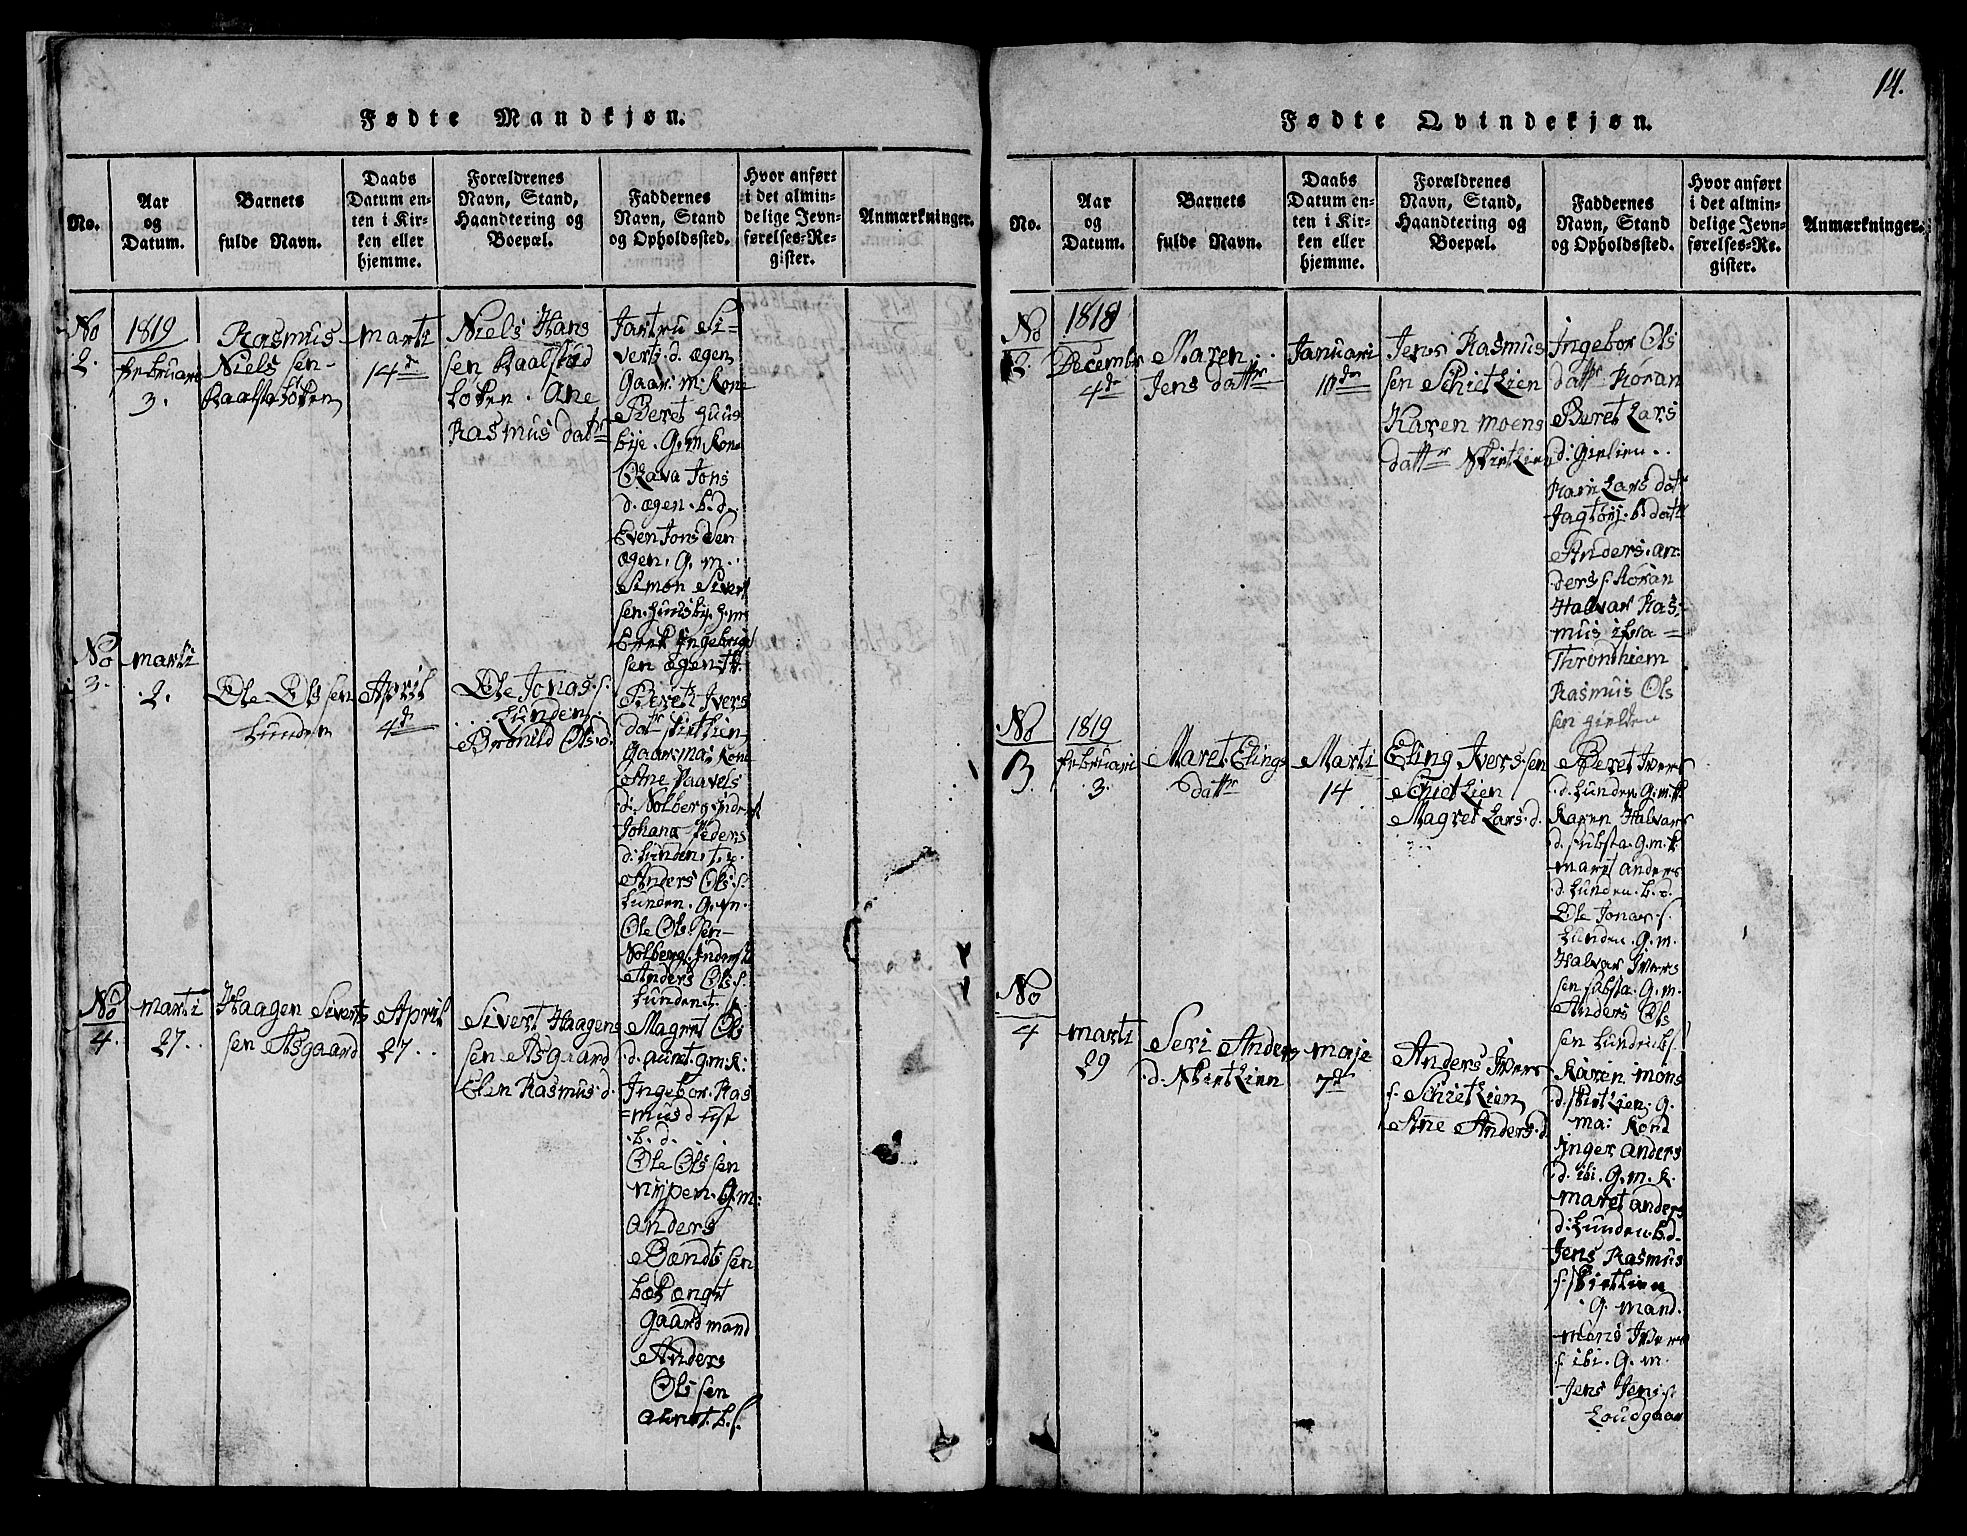 14.
Fødte Mandkjøn.
No.
Aar
og
Datum.
Barnets
fulde Navn.
Daabs
Datum en-
ten i Kir-
ken eller
hjemme.
Forældrenes
Navn, Stand,
Haandtering og
Boepæl.
Faddernes
Navn, Stand
og Opholdssted.
Hvor anført
i det almin-
delige Jevn-
førelses-Re-
gister.
Anmærkninger.
No
2.
1819
februari
3.
Rasmus
Niels sen
marti
14de
Niels Hans
sen
Ane
Rasmus datr
Jartru Si=
vertz.d. ægen
Gaar.m.Kone
Beret huus
bye.G.m.Kone
Olava Jons
d.ægen.b.d.
Even Jons Sen
ægen.G.m.
Simon Sivert
sen.huusbye.g.m
Erek Ingebrigt
sen ægen.
No
3.
marti
2.
Ole Ols sen
Lunden
April
4de
Ole Jonas.s.
Lunden
Bronild Ols.d.
Beret Ivers
datr skietlien
Gaar.ma:Kone
Ane Paavels
d. Solberg
Johana Peders
d:Lunden.
Anders Ols.s.
Lunden.G.m.
Ole Ols sen
Solberg.
Anders Ols.s.
Lunden.
No
4.
marti
27..
Haagen Siverts
sen Asgaard
April
27..
Sivert Haagens
sen Asgaard
Elen Rasmus.d.
Magret Ols
.d.aunet.g.m.k:
Ingebor.Ras
=mus d
.b.d.
Ole Ols sen
nypen.G.m:
anders
Bændt sen
gaard mand
Anders
Ols sen
aunet.b.s.
Fødte Qvindekjøn.
No.
Aar
og
Datum.
Barnets
fulde Navn.
Daabs
Datum en-
ten i Kir-
ken eller
hjemme.
Forældrenes
Navn, Stand,
Haandtering og
Boepæl.
Faddernes
Navn, Stand
og Opholdssted.
Hvor anført
i det almin-
delige Jevn-
førelses-Re-
gister.
Anmærkninger.
No
2.
1818
Decembr
4de
Maren
Jens dattr
Januari
10de
Jens Rasmus
sen Schietlien
Karen moens
dattr Skietlien
Ingebor Ols
dattr
Beret Lars
d:gielien..
Kari Lars datr
Anders.an:
ders s
Halvar Ras=
mus
Thronhiem
Rasmus Ols
sen gielden
No
3.
1819
februari
3.
Maret Elings
dattr
Marti
14
Eling Ivers.sen
Schietlien
Magret Lars.d.
Beret Ivers
.d.Lunden.G.m.k
Karen Halvars
.d.fubsta.G.m.k
maret anders
.d.Lunden.b.d.
Ole Jonas.s.
Lunden.G.m.
Halvar Ivers
sen fabsta.G.m.
Anders Ols
sen Lunden.b.s
No
4
marti
29
Seri Anders
.d.Skietlien
maje
7de
Anders Ivers
s.Schietlien
Ane Anders.d
Karen mons
d.skietlien.g.
ma: Kone
Inger anders
d.ibi.G.m.k.
maret anders
d:Lunden.b.d
Jens Rasmus
.s.skietlien
G. mand.
mons Ivers
s ibi.G.m.
Jens Jens.s